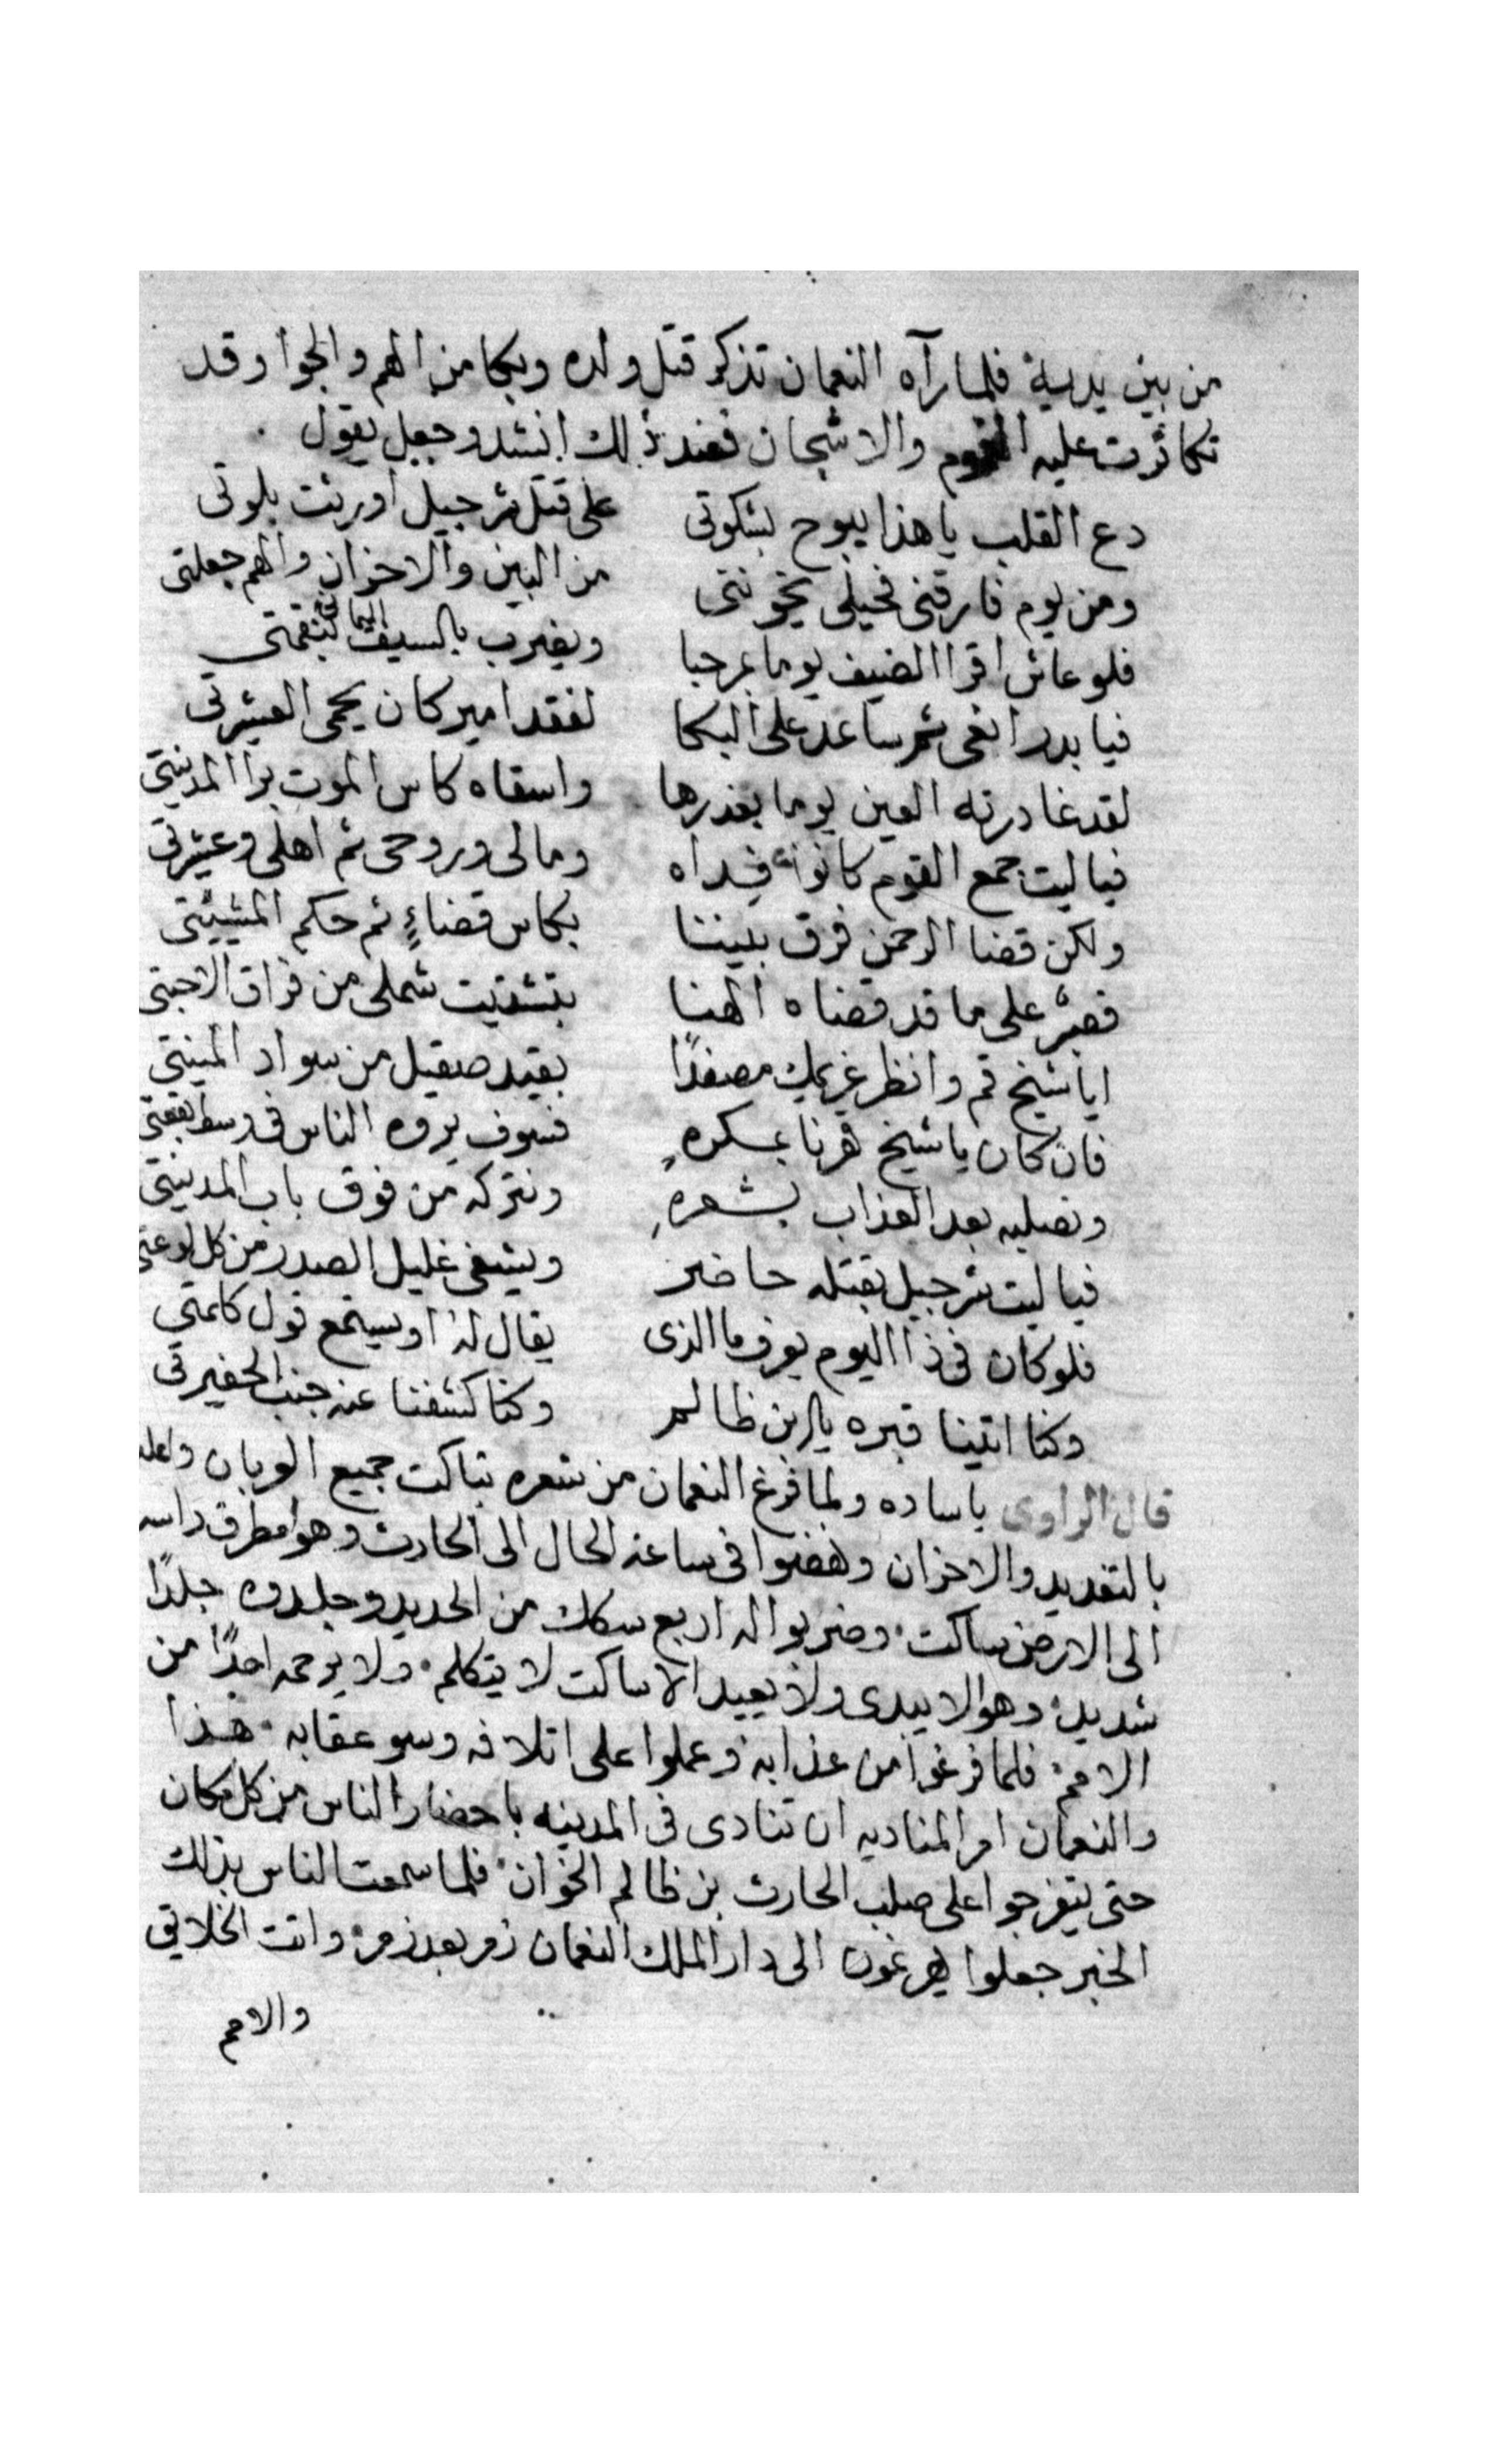 من بين يديه فلما رآه النعمان تذكر قتل ولده وبكا من الهم والجوا وقد
تكاثرت عليه الغموم والاشجان فعند ذلك انشد وجعل يقول
دع القلب يا هذا يبوح بشكوتى على قتل شرجيل اورثت بلوتى
ومن يوم فارقنى فحيلى يخوننى من البين والاحزان والهم جملتى
فلو عاش اقرا الضيف يوما بمرحبا ويضرب بالسيف اليمانى بنقمتى
فيا بدر انعى ثم ساعد على البكا لفقد امير كان يحمى العشيرتى
لقد غادرته العين يوما بغدرها واسقاه كاس الموت برا المدينتى
فيا ليت جمع القوم كانوا فداه ومالى وروحى ثم اهلى وعشرتى
ولكن قضا الرحمن فرق بيننا بكاس قضاءٍ ثم حكم المشيئتى
فصبرٌ على ما قد قضاه الهنا بتشتيت شملى من فراق الاحبتى
ايا شيخ قم وانظر غريمك مصفدًا بقيد صقيل من سواد المنيتى
فان كان يا شيخ قرنا بمسكرهِ فسوف يروه الناس فى وسط بقعتى
ونصلبه بعد العذاب بشعرهِ ونتركه من فوق باب المدينتى
فيا ليت شرجيل بقتله حاضر ويشفى غليل الصدر من كل لوعتى
فلو كان فى ذا اليوم يعرف ما الذى يقال له او يستمع قول كلمتى
وكنا اتينا قبره يا ابن ظالم وكنا كشفنا عنه جنب الحفيرتى
قال الراوى يا ساده ولما فرغ النعمان من شعره تباكت جميع العربان
بالتعديد والاحزان ونهضوا فى ساعة الحال الى الحارث وهو امطرق راسه
الى الارض ساكت وضربوا له اربع سكك من الحديد وجلدوه جلدًا
شديد وهو لا يبدى ولا يعيد الا ساكت لا يتكلم ولا يرحمه احدًا من
الامم فلما فرغوا من عذابه وعملوا على اتلافه وسو عقابه هذا
والنعمان امر المناديه ان تنادى فى المدينه باحضار الناس من كل مكان
حتى يتفرجوا على صلب الحارث بن ظالم الخوان فلما سمعت الناس بذلك
الخبر جعلوا يهرعون الى دار الملك النعمان زمر بعد زمر واتت الخلايق
والامم